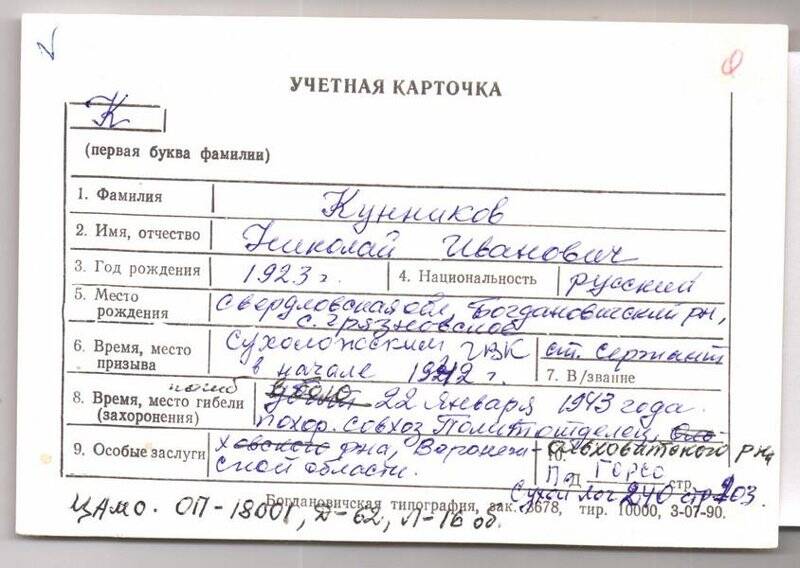 УЧЕТНАЯ КАРТОЧКА
К
(первая буква фамилии)
1. Фамилия Кунников
2. Имя, отчество Николай Иванович
3. Год рождения 1923 г. 4. Национальность русский
5. Место рождения Свердловская обл, Богдановичский рн,
с. Грязновское
6. Время, место призыва Сухоложским ГВК
в начале 1942 г.
ст. сержант
7. В/звание
погиб
8. Время, место гибели (захоронения) 22 января 1943 года.
похор. совхоз Политотделец,
9. Особые заслуги рна, Воронеж-
ской области.
ольховатского рна
10.
П Д Горсо стр.
Сухой Лог 240 стр 203.
Богдановичская типография, зак. 3678, тир. 10000, 3-07-90.
ЦАМО. ОП-18001, Д-62, Л-16 об.